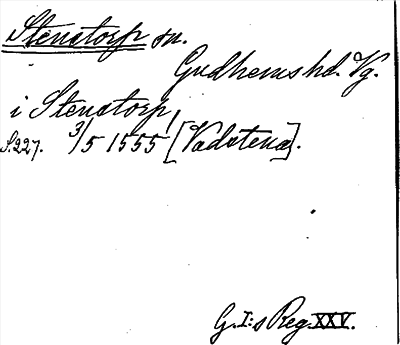 Stenstorp sn.
Gudhems hd. Vg.
i Stenstorp,
S.227. 3/5 1555 [Vadstena].
G. I:s Reg. XXV.